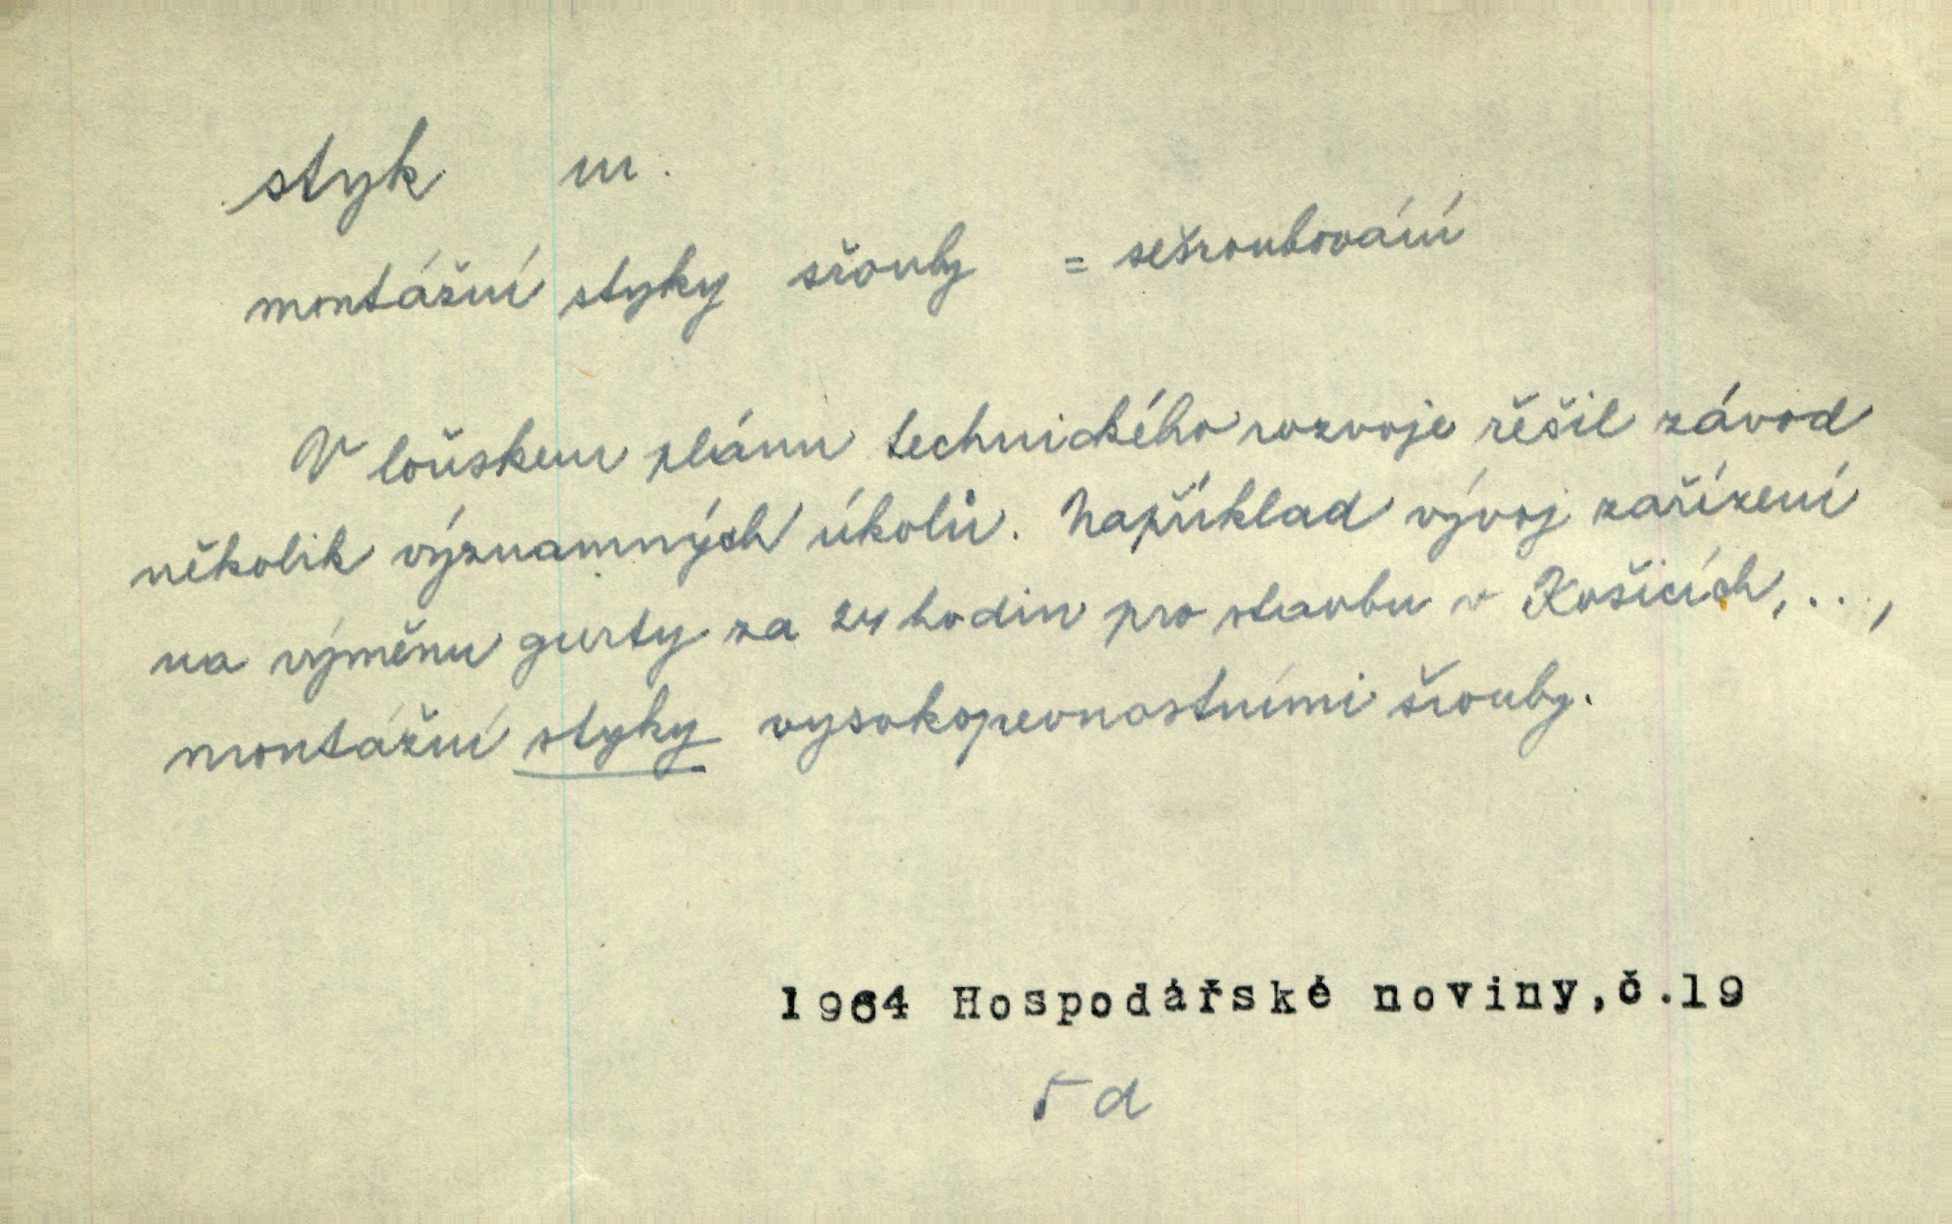 styk m.
montážní styky šrouby = sešroubování
V loňském plánu technického rozvoje řešil závod
několik významných úkolů. Například vývoj zařízení
na výměnu gurty za 24 hodin pro stavbu v Košicích,...,
montážní styky vysokopevnostními šrouby.
1964 Hospodářské noviny,č.19
5 d